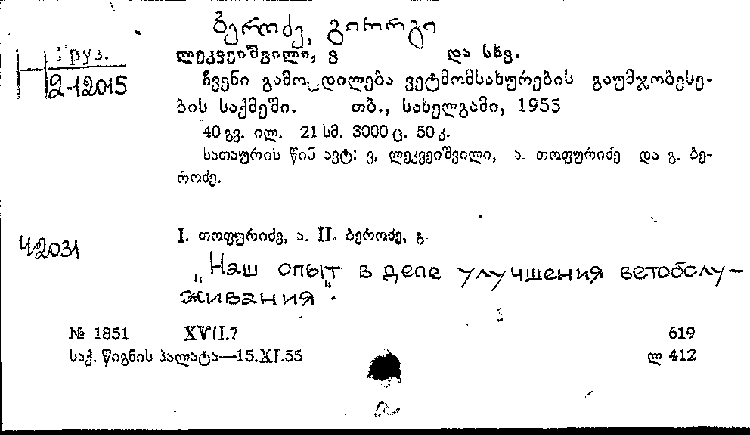 ბეროძე, გიორგი
Груз.
2-12015
ლეკვეიშვილი, გ და სხვ.
ჩვენი გამოცდილება ვეტმომსახურების გაუმჯობესე-
ბის საქმეში. თბ., სახელგამი, 1955
40 გვ. ილ. 21 სმ. 3000 ც. 50 კ.
სათაურის წინ ავტ: ვ. ლეკვეიშვილი, ა. თოფურიძე და გ. ბე-
როძე.
I. თოფურიძე, ა. II. ბეროძე, გ.
42031
„Наш опыт в деле улучшения ветобслу-
живания“.
№ 1851 XVII.7 619
საქ. წიგნის პალატა—15.XI.55 ლ 412